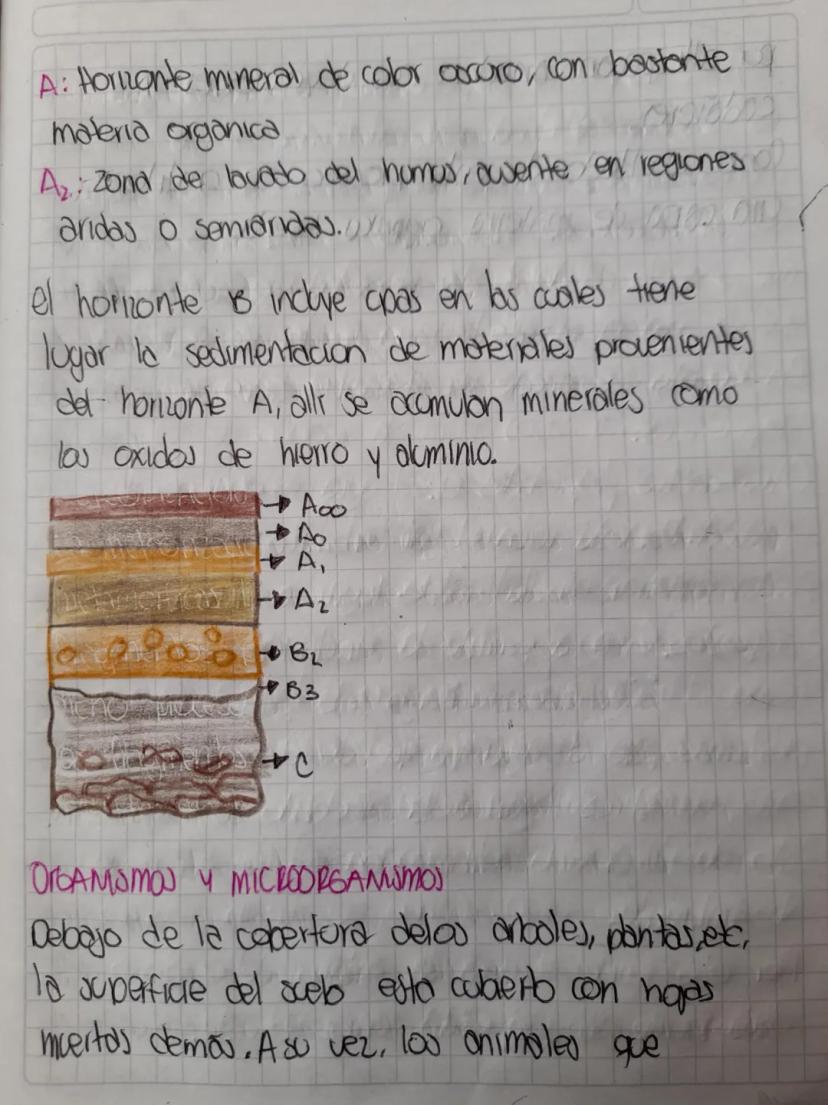 A: Horizonte mineral de color oscuro, con bastante
materia organica
A2: zona de lavado del humus, ausente en regiones
aridas o semiaridas.
el horizonte B incluye cpas en las cuales tiene
lugar la sedimentacion de materiales provenientes
del horizonte A, alli se acumulan minerales como
los oxidos de hierro y aluminio.
A00
A0
A1
A2
B2
B3
C
ORGANISMOS Y MICROORGANISMOS
Debajo de la cobertura delos arboles, plantas, etc,
la superficie del suelo esta cubierto con hojas
muertas demás. A su vez, los animales que